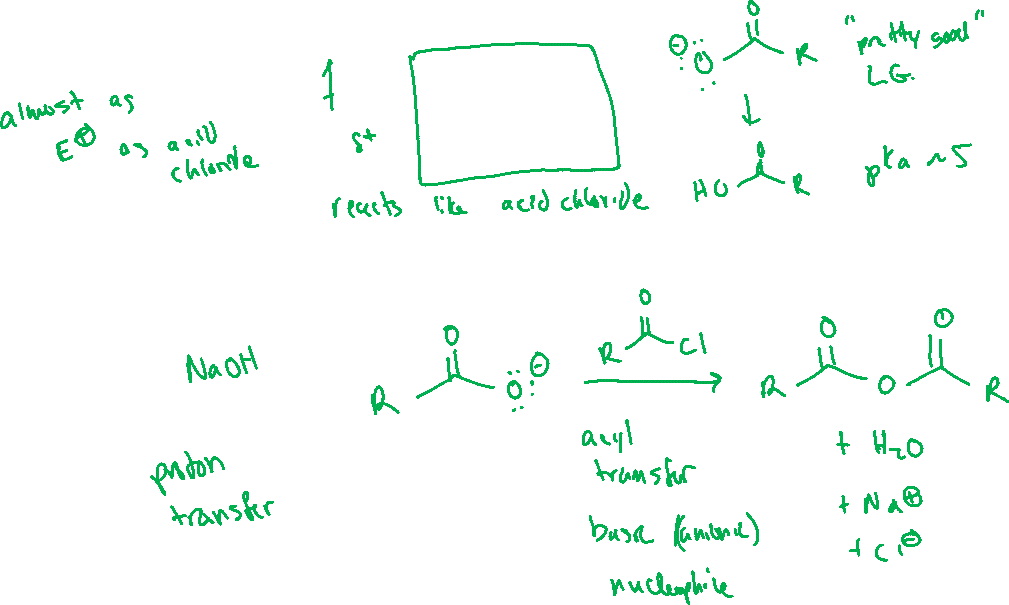 almost as
E⊕ as acid
chloride
δ+
reacts like acid chloride
O
⊖ :O: R
"pretty good"
L.G.
O
HO R
pka ~5
NaOH
proton
transfer
O
R O ⊖
O
R Cl
acyl
transfer
basic (anionic)
nucleophile
O O
R O R
+ H2O
+ Na⊕
+ Cl⊖